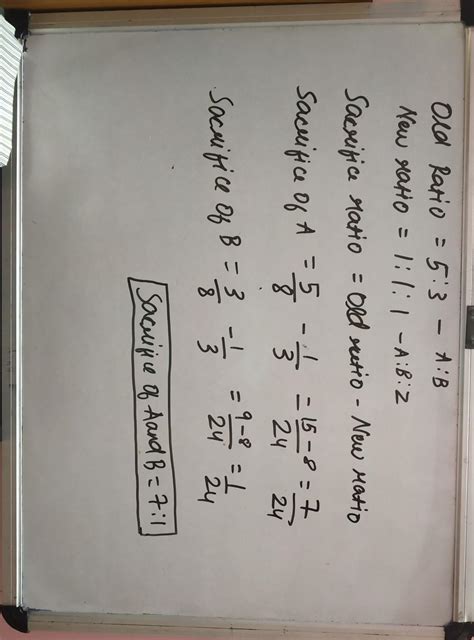 Old Ratio = 5:3 - A:B
New ratio = 1:1:1 - A:B:Z
Sacrifice ratio = Old ratio - New ratio
Sacrifice of A = 5/8 - 1/3 = 15-8/24 = 7/24
Sacrifice of B = 3/8 - 1/3 = 9-8/24 = 1/24
Sacrifice of A and B = 7:1